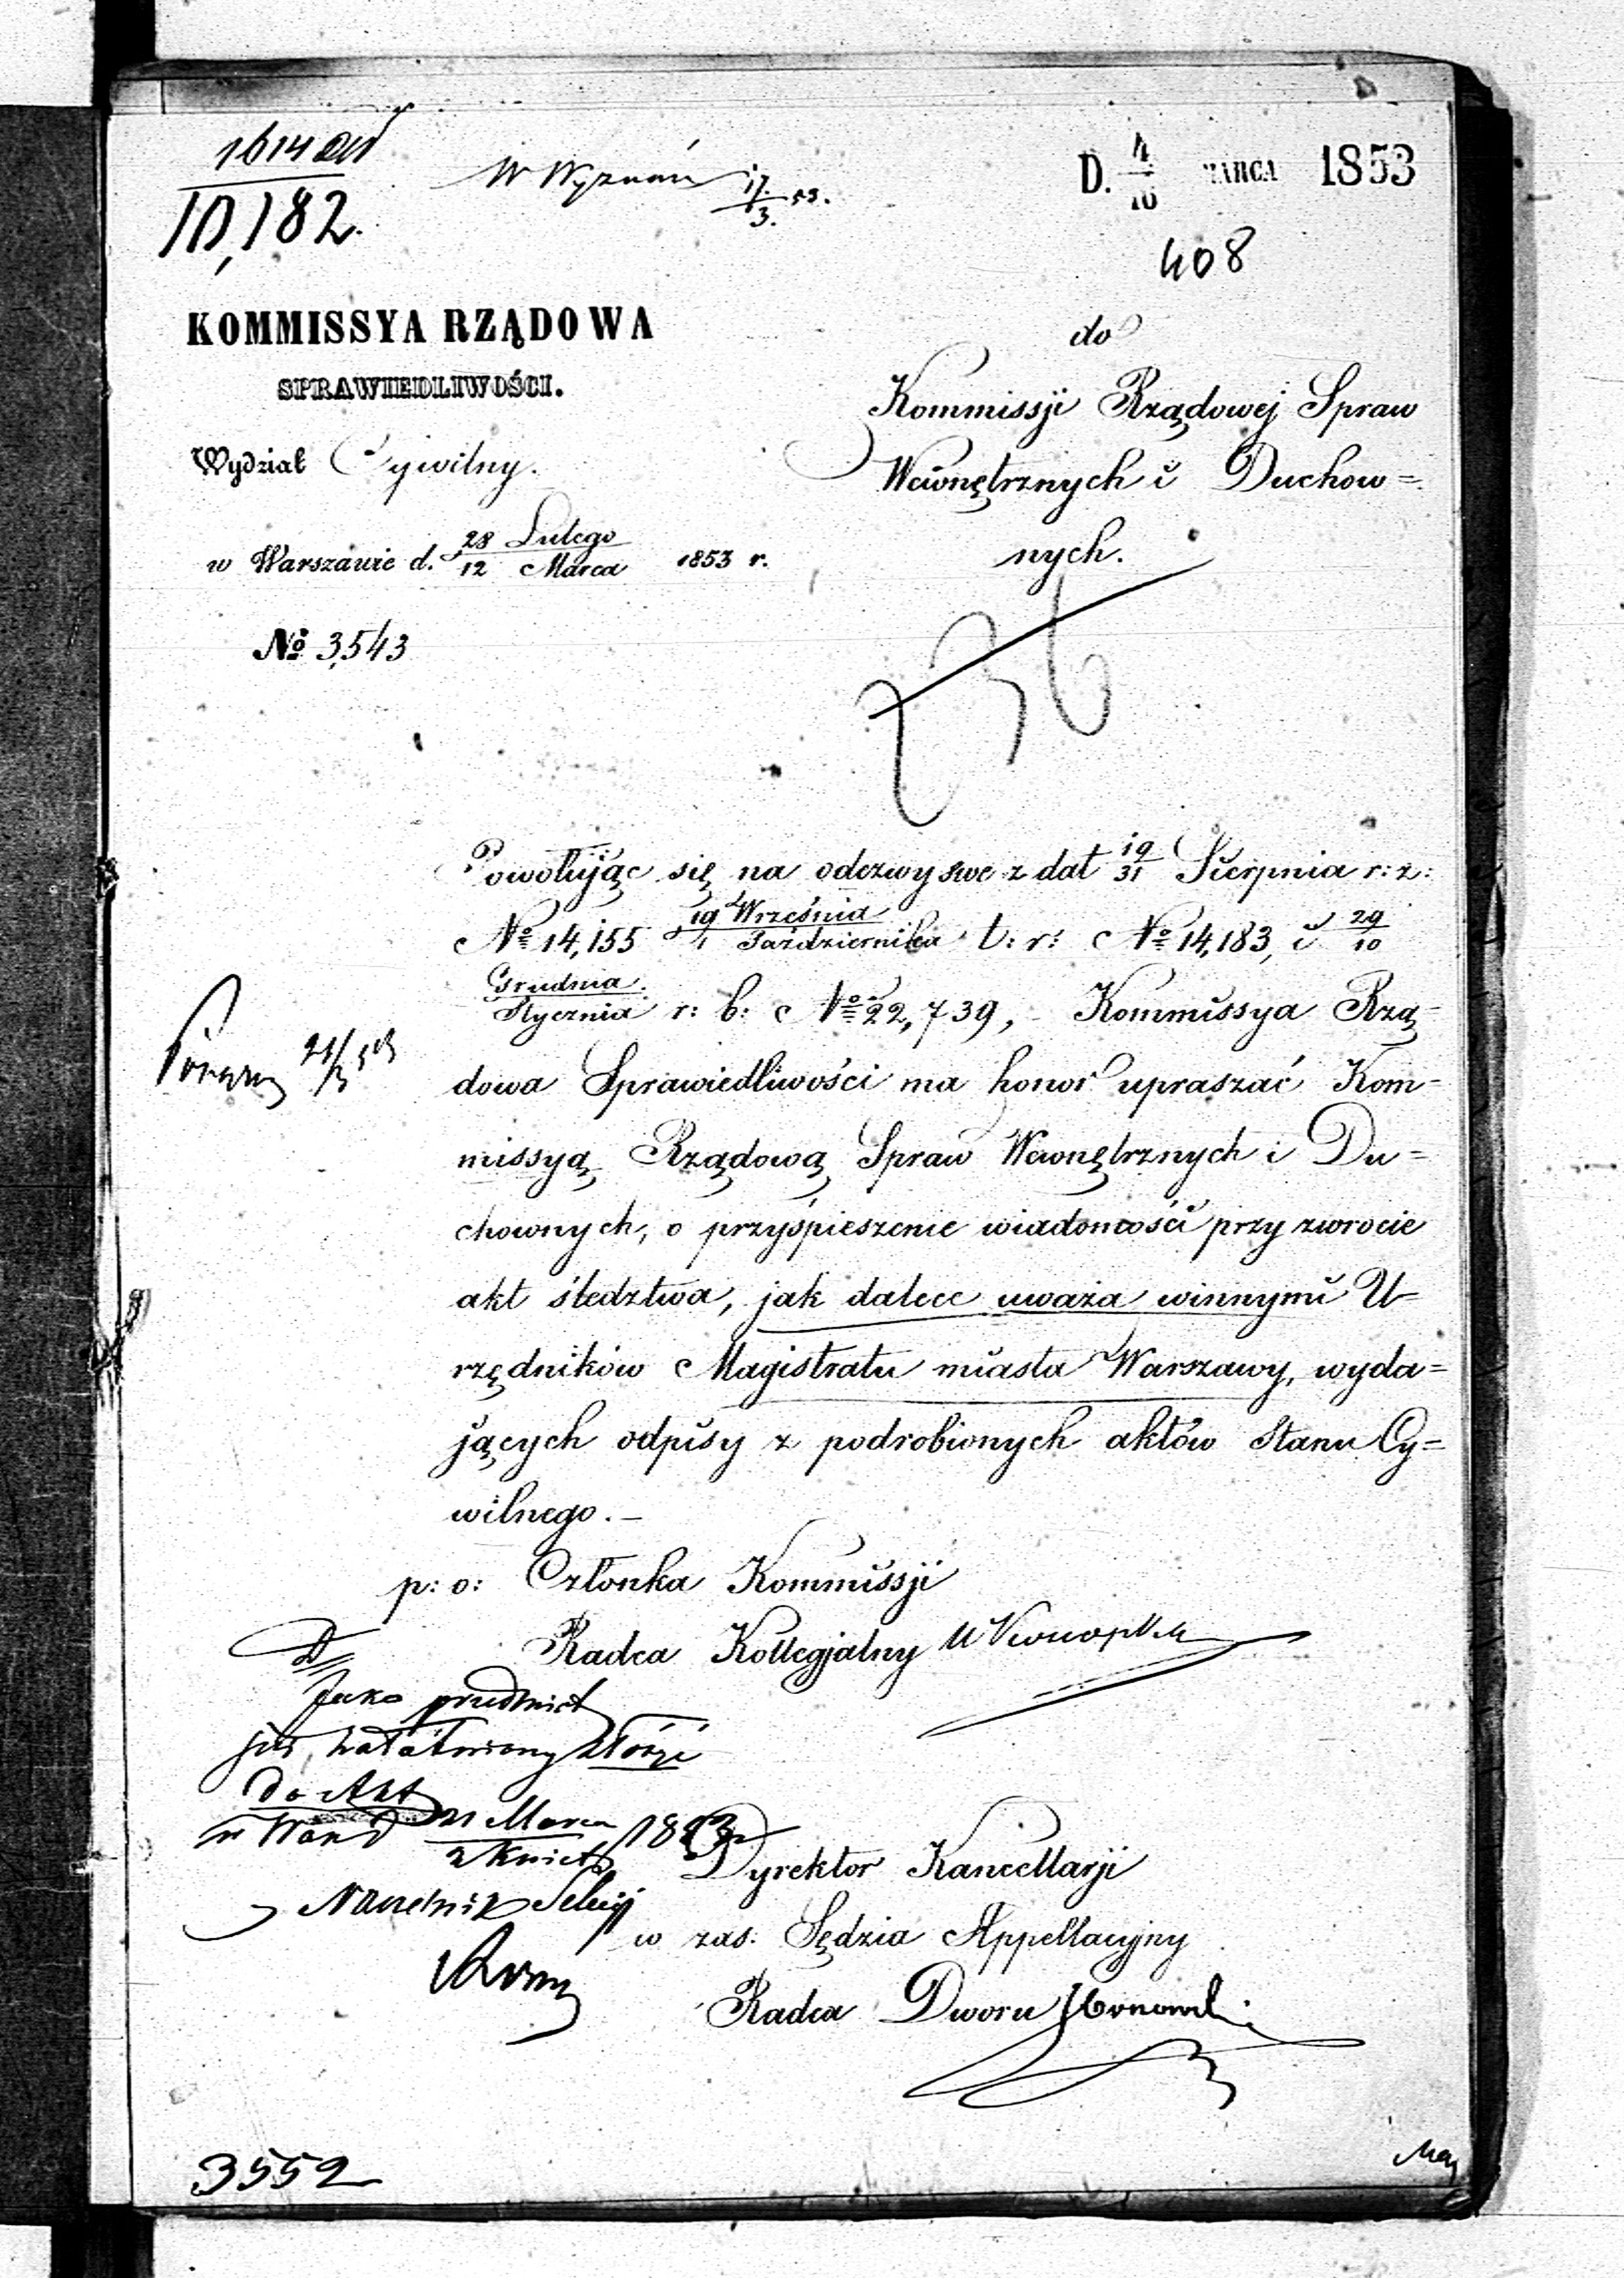 1614
10,182.
W Wyznań 17/3. 53.
D. 4/16 MARCA 1853
408
KOMMISSYA RZĄDOWA
SPRAWIEDLIWOŚCI.
Wydział Cywilny.
w Warszawie d. 28 Lutego / 12 Marca 1853 r.
№ 3,543
do
Kommissji Rządowej Spraw
Wewnętrznych i Duchow=
nych.
236
Powołując się na odezwy swe z dat 19/31 Sierpnia r: z:
№ 14,155 19 Września / 1 Października t: r: № 14,183, i 29/10
Grudnia / Stycznia r: b: № 22,739, Kommissya Rzą=
dowa Sprawiedliwości ma honor upraszać Kom=
missyą Rządową Spraw Wewnętrznych i Du=
chownych, o przyśpieszenie wiadomości przy zwrocie
akt śledztwa, jak dalece uważa winnymi U=
rzędników Magistratu miasta Warszawy, wyda=
jących odpisy z podrobionych aktów Stanu Cy=
wilnego. –
p: o: Członka Kommissji
Radca Kollegjalny
Jako przedmiot
już załatwiony złożyć
do Akt
w Warsz 21 Marca / 2 Kwiet 1853
Naczelnik Sekcyi
Dyrektor Kancellarji
w zas: Sędzia Appellacyjny
Radca Dworu
3552